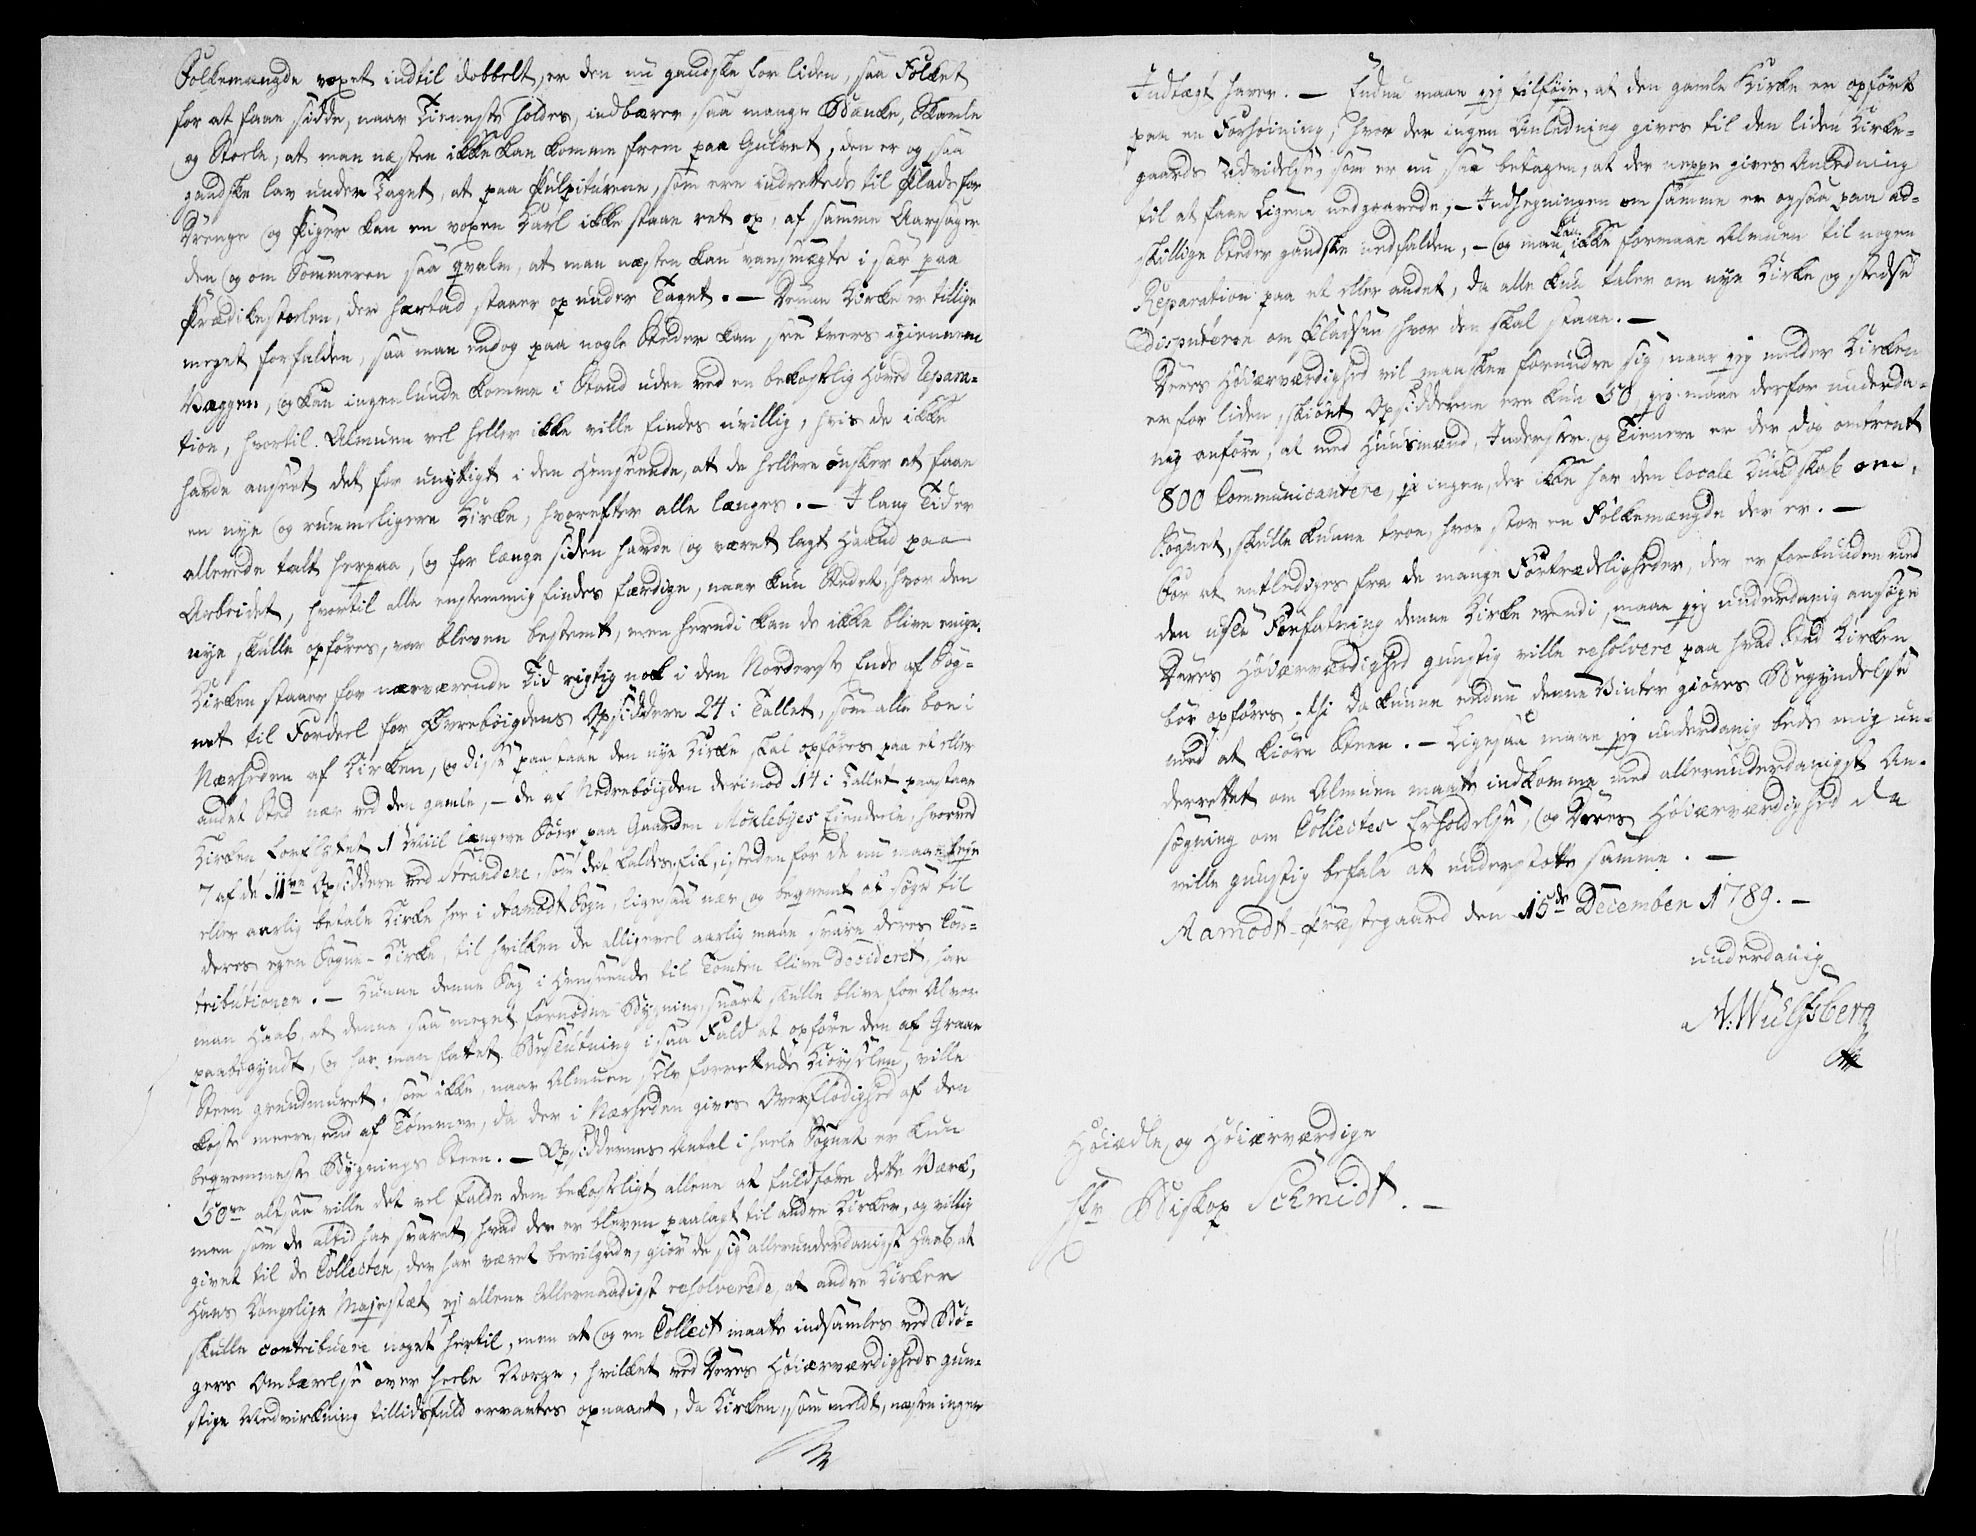 Folkemængde voxet indtil dobbelt, er den nu gandske for liden, saa Folket
for at faae sidde, naar Tieneste holdes, indbærer saa mange Bænke, Skamle
og Stoele, at man næsten ikke kan komme frem paa Gulvet, den er og saa
gandske lav under Taget, at paa Pulpiturene, som ere indrettede til Plads for
Drenge og Piger kan en voxen Karl ikke staae ret op, af samme Aarsager
den og om Sommeren saa qvalm, at man næsten kan vansmægte i sær paa
Prædikestolen, der hartad staaer op under Taget. — Denne Kirke er tillige
meget forfalden, saa man endog paa nogle Steder kan see tvers igiennem
Væggen, og kan ingenlunde komme i Stand uden ved en bekostelig Hoved Repara-
tion, hvortil Almuen vel heller ikke ville findes uvillig, hvis de ikke
havde anseet det for unyttigt i den Henseende, at de hellere ønsker at faae
en nye og rummeligere Kirke, hvorefter alle længes. — I lang Tid er
allerede talt herpaa, og for længe siden havde og været lagt Haand paa
Arbeidet, hvortil alle enstemmig findes færdige, naar kun Stedet, hvor den
nye skulle opføres, var bleven bestemt, men herudi kan de ikke blive enige.
Kirken staaer for nærværende Tid rigtig nok i den Norderste Ende af Sog-
net til Fordeel for Øvrebøigdens Opsiddere 24 i Tallet, som alle boe i
Nærheden af Kirken, og disse paastaae den nye Kirke skal opføres paa et eller
andet Sted nær ved den gamle, — de af Nedrebøigden derimod 14 i Tallet paastaae
Kirken forflyttet 1 Miil længere Sør paa Gaarden Møklebyes Eiendeele, hvorved
7 af de 11ve Opsiddere ved Strandene, som det kaldes, fik, isteden for de nu maae leje
eller aarlig betale Kirke her i Aamodt Sogn, ligesaa nær og beqvemt at søge til
deres egen Sogne-Kirke, til hvilken de alligevel aarlig maae svare deres Con-
tributioner. — Kunne denne Sag i Henseende til Tomten blive decideret, har
man Haab, at denne saa meget fornødne Bygning snart skulle blive for Alvor
paabegyndt, og har man fattet Beslutning i saa Fald at opføre den af Graae
Steen grundmuret, som ikke, naar Almuen selv forrettede Kiørselen, ville
koste meere end af Tømmer, da der i Nærheden gives Overflødighed af den
beqvemmeste Bygnings Steen. — Opsiddernes Antal i heele Sognet er kun
50ve altsaa ville det vel falde dem bekosteligt allene at fuldføre dette Værk,
men som de altid har svaret hvad der er bleven paalagt til andre Kirker, og villig
givet til de Collecter, der har været bevilgede, giør de sig allerunderdanigst Haab, at
Hans Kongelige Majestæt ej allene Allernaadigst resolverede, at andre Kirker
skulle contribuere noget hertil, men at og en Collect maatte indsamles ved Bø-
gers Ombærelse over heele Norge, hvilket ved Deres Høiærværdigheds gun-
stige Medvirkning tillidsfuld erventes opnaaet, da Kirken, som meldt, næsten ingen
Indtægt haver. — Endnu maae jeg tilføje, at den gamle Kirke er opført
paa en Forhøining, hvor der ingen Anledning gives til den liden Kirke-
gaards Udvidelse, som er nu saa betagen, at der neppe gives Anledning
til at faae Ligene nedgravede, — Indhegningen om samme er ogsaa paa ad-
skillige Steder gandske nedfalden, — og man kan ikke formaae Almuen til nogen
Reparation paa et eller andet, da alle kun taler om nye Kirke og stedse
disputerer om Pladsen hvor den skal staae. —
Deres Høiærværdighed vil maaskee forundre sig, naar jeg melder Kirken
er for liden, skiønt Opsidderne ere kun 50, jeg maae derfor underda-
nig anføre, at med Huusmænd, Inderster og Tienere er der dog omtrent
800 Communicantere, ja ingen, der ikke har den locale Kundskab om
Sognet, skulle kunne troe, hvor stor en Folkemængde der er. —
For at entlediges fra de mange Fortrædeligheder, der er forbunden med
den usle Forfatning denne Kirke er udi, maae jeg underdanig ansøge
Deres Høiærværdighed gunstig ville resolvere paa hvad Sted Kirken
bør opføres, thi da kunne endnu denne Vinter giøres Begyndelse
med at kiøre Steen. — Ligesaa maae jeg underdanig bede mig un-
derrettet om Almuen maatte indkomme med allerunderdanigst An-
søgning om Collectes Erholdelse, og Deres Høiærværdighed da
ville gunstig befale at understøtte samme. —
Aamodt-Præstegaard den 15de December 1789. —
underdanig
N: Wulfsberg
Høiædle og Høiærværdige
Hr Biskop Schmidt. —